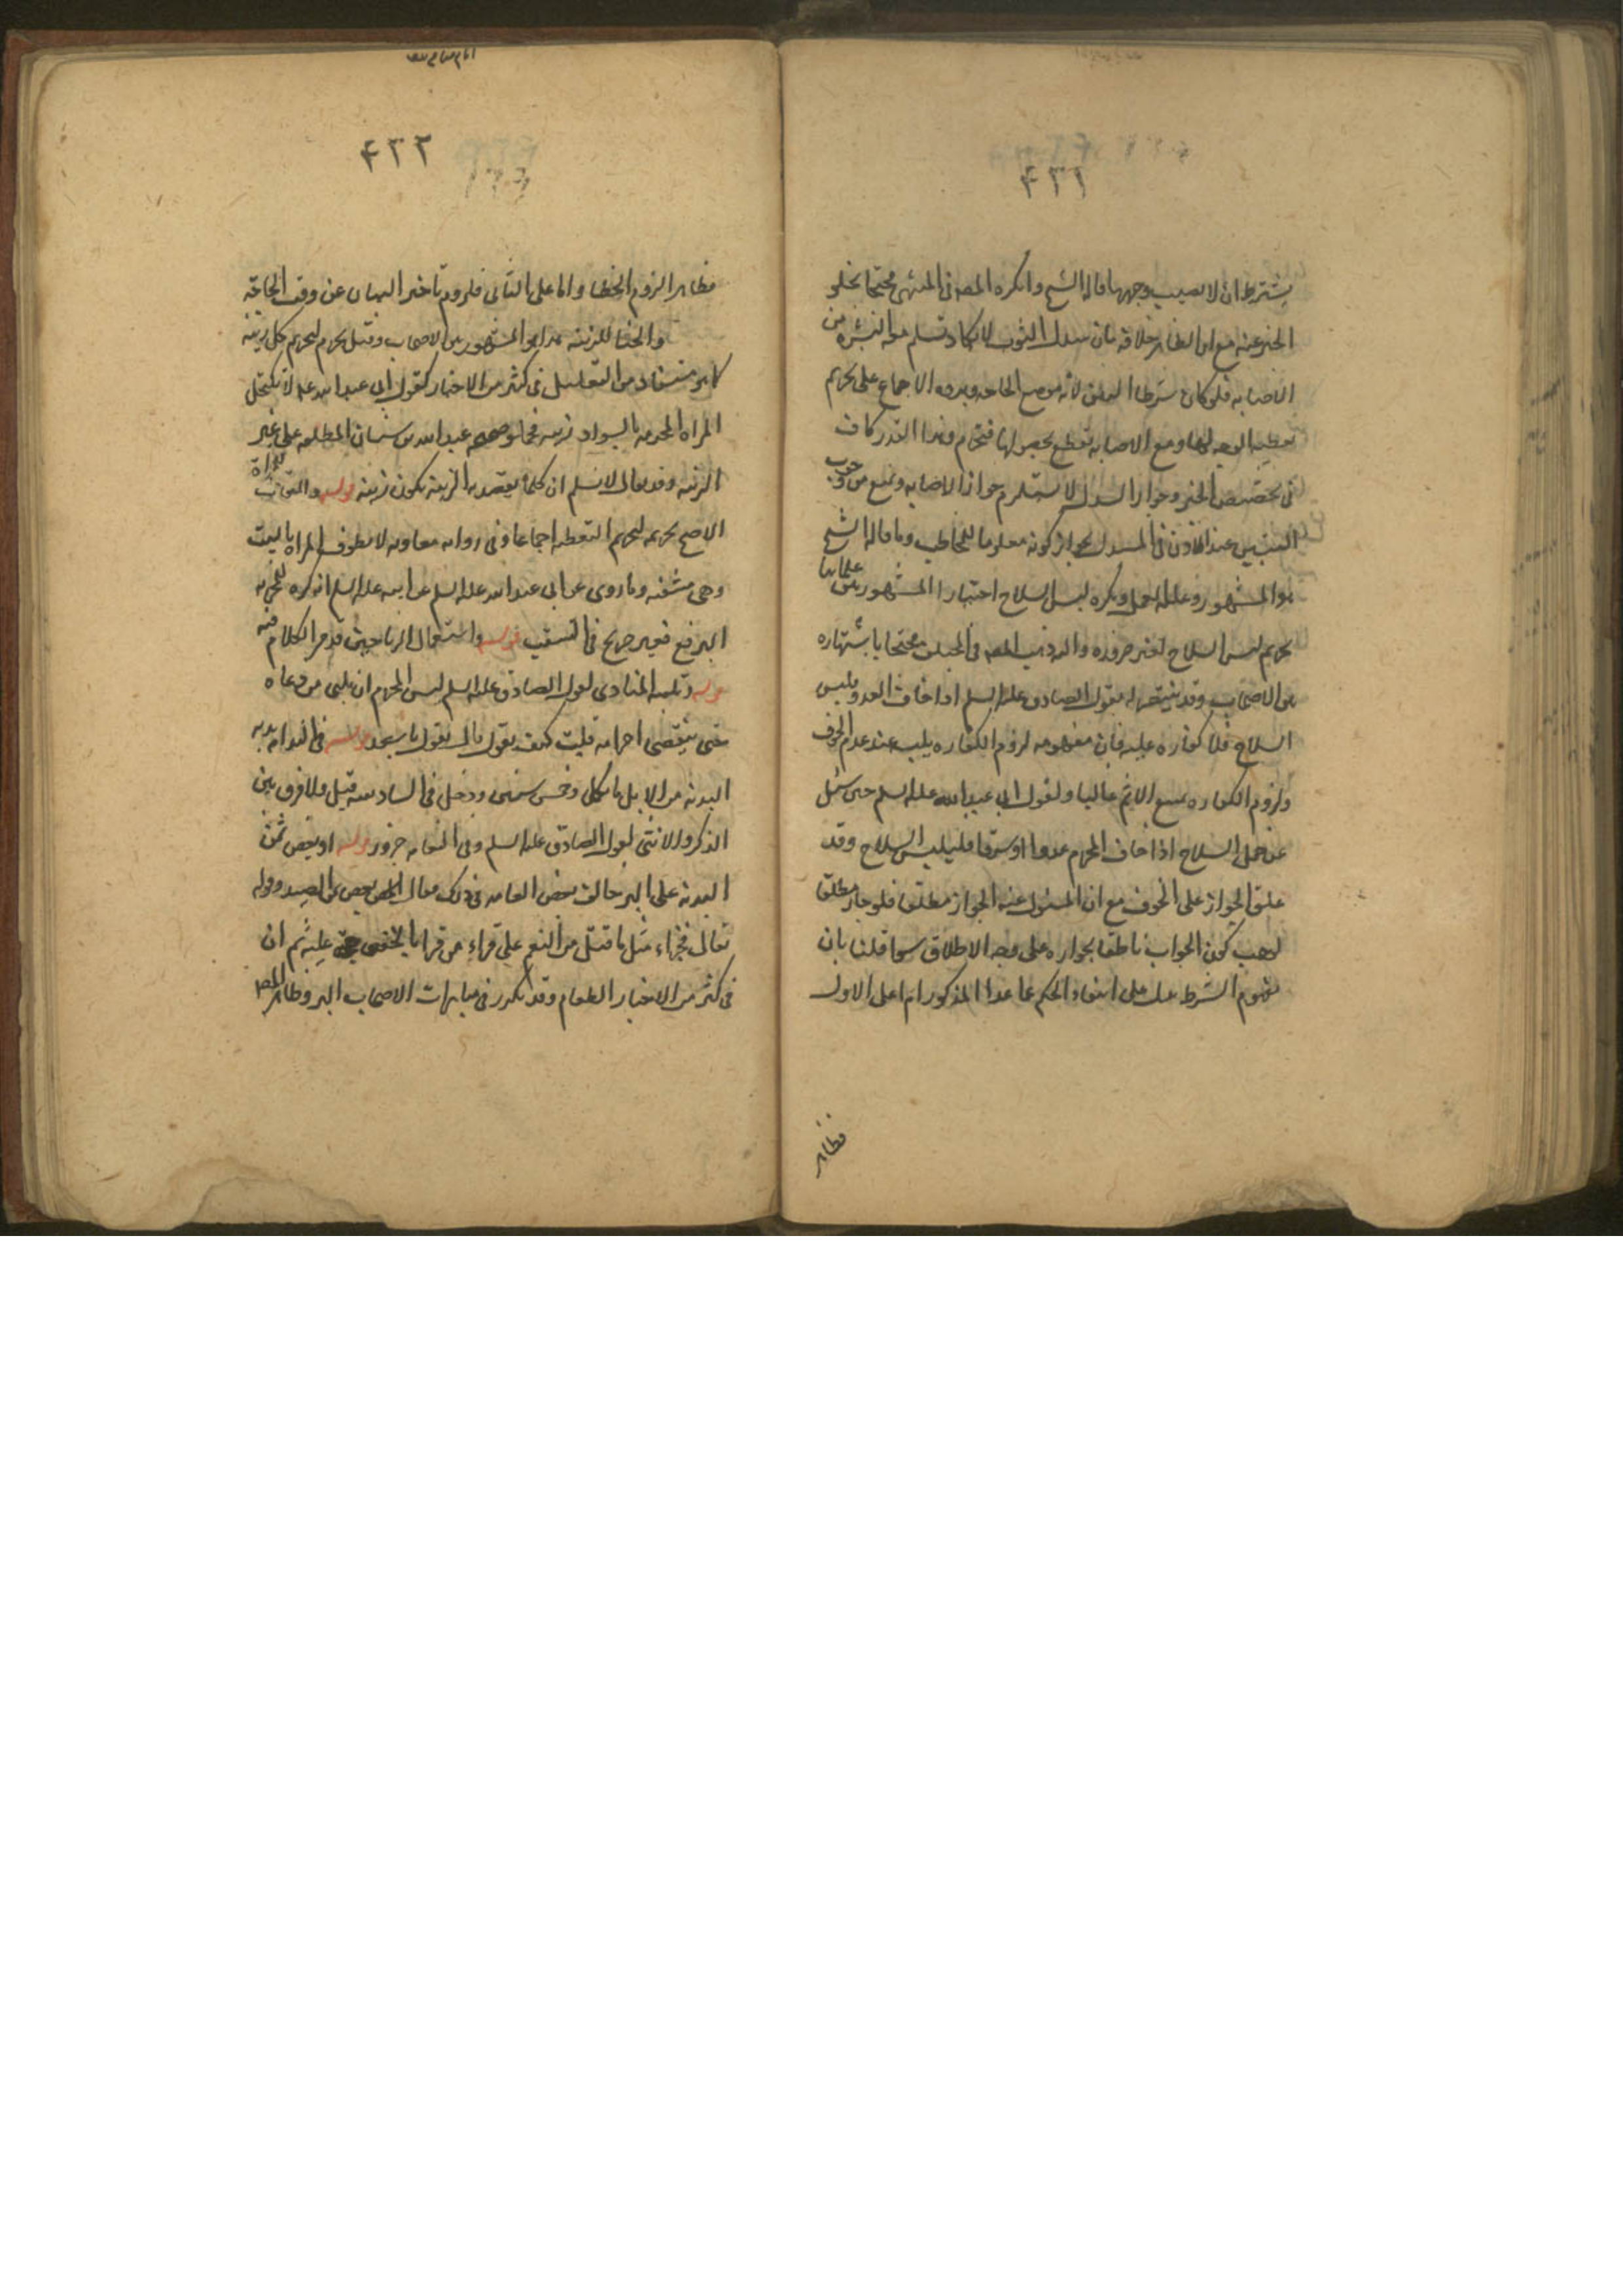 ٤٣١
يشترط ان لا يصيب وجهها قاله الشيخ وانكره المصـ في المنتهى محتجا بخلو
الخبر عنه مع ان الظاهر خلافه فان سدل الثوب لا يكاد تسلم معه البشره من
الاصابه فلو كان شرطا لبين لانه موضع الحاجه ويرده الاجماع على تحريم
تغطيه الوجه لها ومع الاصابه تقطع بحصولها فتحرم وهذا القدر كاف
في تخصيص الخبر وجواز السدل لا يستلزم جواز الاصابه ونمنع من وجوب
التبيين عند الاذن في السدل لجواز كونه معلوما للمخاطب وما قاله الشيخ
هو المشهور وعليه العمل ويكره لبس السلاح اختيارا المشهور بين علمائنا
تحريم لبس السلاح لغير ضروره واليه ذهب المصـ في المختلف محتجا باشتهاره
بين الاصحاب وقد يتحتج له بقول الصادق عليه السلم اذا خاف العدو فلبس
السلاح فلا كفاره عليه فان مفهومه لزوم الكفاره يلبسه عند عدم الخوف
ولزوم الكفاره يتبع الاثم غالبا ولقول ابي عبد الله عليه السلم حين سئل
عن حمل السلاح اذا خاف المحرم عدوا او سرقا فليلبس السلاح وقد
علق الجواز على الخوف مع ان المسئول عنه الجواز مطلقا فلو جاز مطلقا
لوجب كون الجواب ناطقا بجوازه على وجه الاطلاق سوا قلنا بان
مفهوم الشرط يدل على انتفاء الحكم عما عدا المذكور ام لا اما على الاول
فظاهر
٤٣٢
فظاهر لزوم الخطا واما على الثاني فلزوم تاخير البيان عن وقت الحاجة
والحنا للزينه هذا هو المشهور بين الاصحاب وقيل يحرم لتحريم كل زينه
كما هو مستفاد من التعليل في كثير من الاخبار كقول ابي عبد الله عليه لا تكتحل
المراه المحرمه بالسواد زينه فيحمل صحيحه عبد الله بن سنان المطلقه على غير
الزينه وقد يقال لا نسلم ان كلما يقصد به الزينة يكون زينه قوله والنقاب للمراة
الاصح تحريمه لتحريم التغطيه اجماعا وفي روايه معاويه لا تطوف المراه بالبيت
وهي متنقبه وما روي عن ابي عبد الله عليه السلم عن ابيه عليه السلم انه كره للمحرمه
البرقع فغير صريح في التنقيب قوله واستعمال الرياحين قد مر الكلام فيه
قوله وتلبيه المنادي لقول الصادق عليه السلم ليس للمحرم ان يلبي من دعاه
حتى ينقضي احرامه قلت كيف يقول قال يقول يا سعد قوله في النعامه بدنه
البدنه من الابل ما كمل وخمس سنين ودخل في السادسه قيل ولا فرق بين
الذكر والانثى لقول الصادق عليه السلم وفي النعامه جزور قوله او يفض ثمن
البدنه على البر خالف بعض العامه في ذلك فقال يفض ثمن الصيد وقوله
تعالى فجزاء مثل ما قتل من النعم على قراءه من قرا بالخفض حجة عليه ثم ان
في كثير من الاخبار الطعام وقد تكرر في عبارات الاصحاب البر وظاهر المصـ